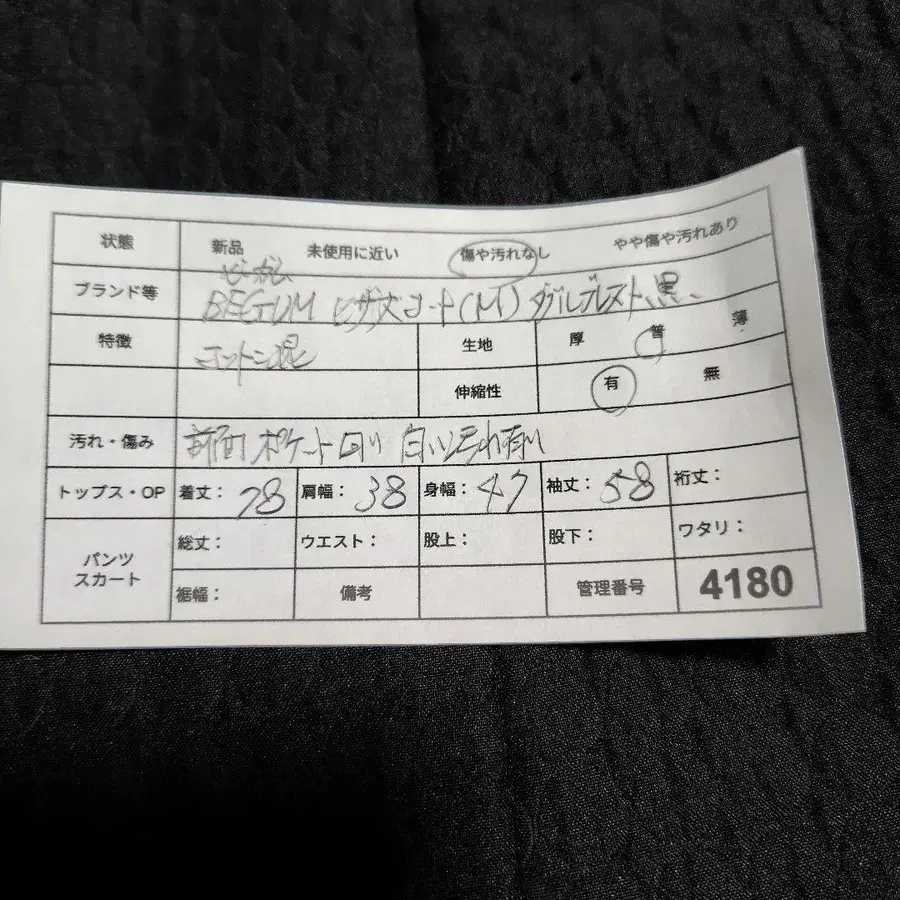 状態 新品 未使用に近い 傷や汚れなし やや傷や汚れあり
ビーガム
ブランド等 BEGUM ヒザ丈コート(M) ダブルブレスト、黒、
特徴 コットン混 生地 厚 普 薄
伸縮性 有 無
汚れ・傷み 前面ポケート 白い汚れ有り
トップス・OP 着丈: 78 肩幅: 38 身幅: 47 袖丈: 58 裄丈:
パンツ スカート 総丈: ウエスト: 股上: 股下: ワタリ:
裾幅: 備考 管理番号 4180